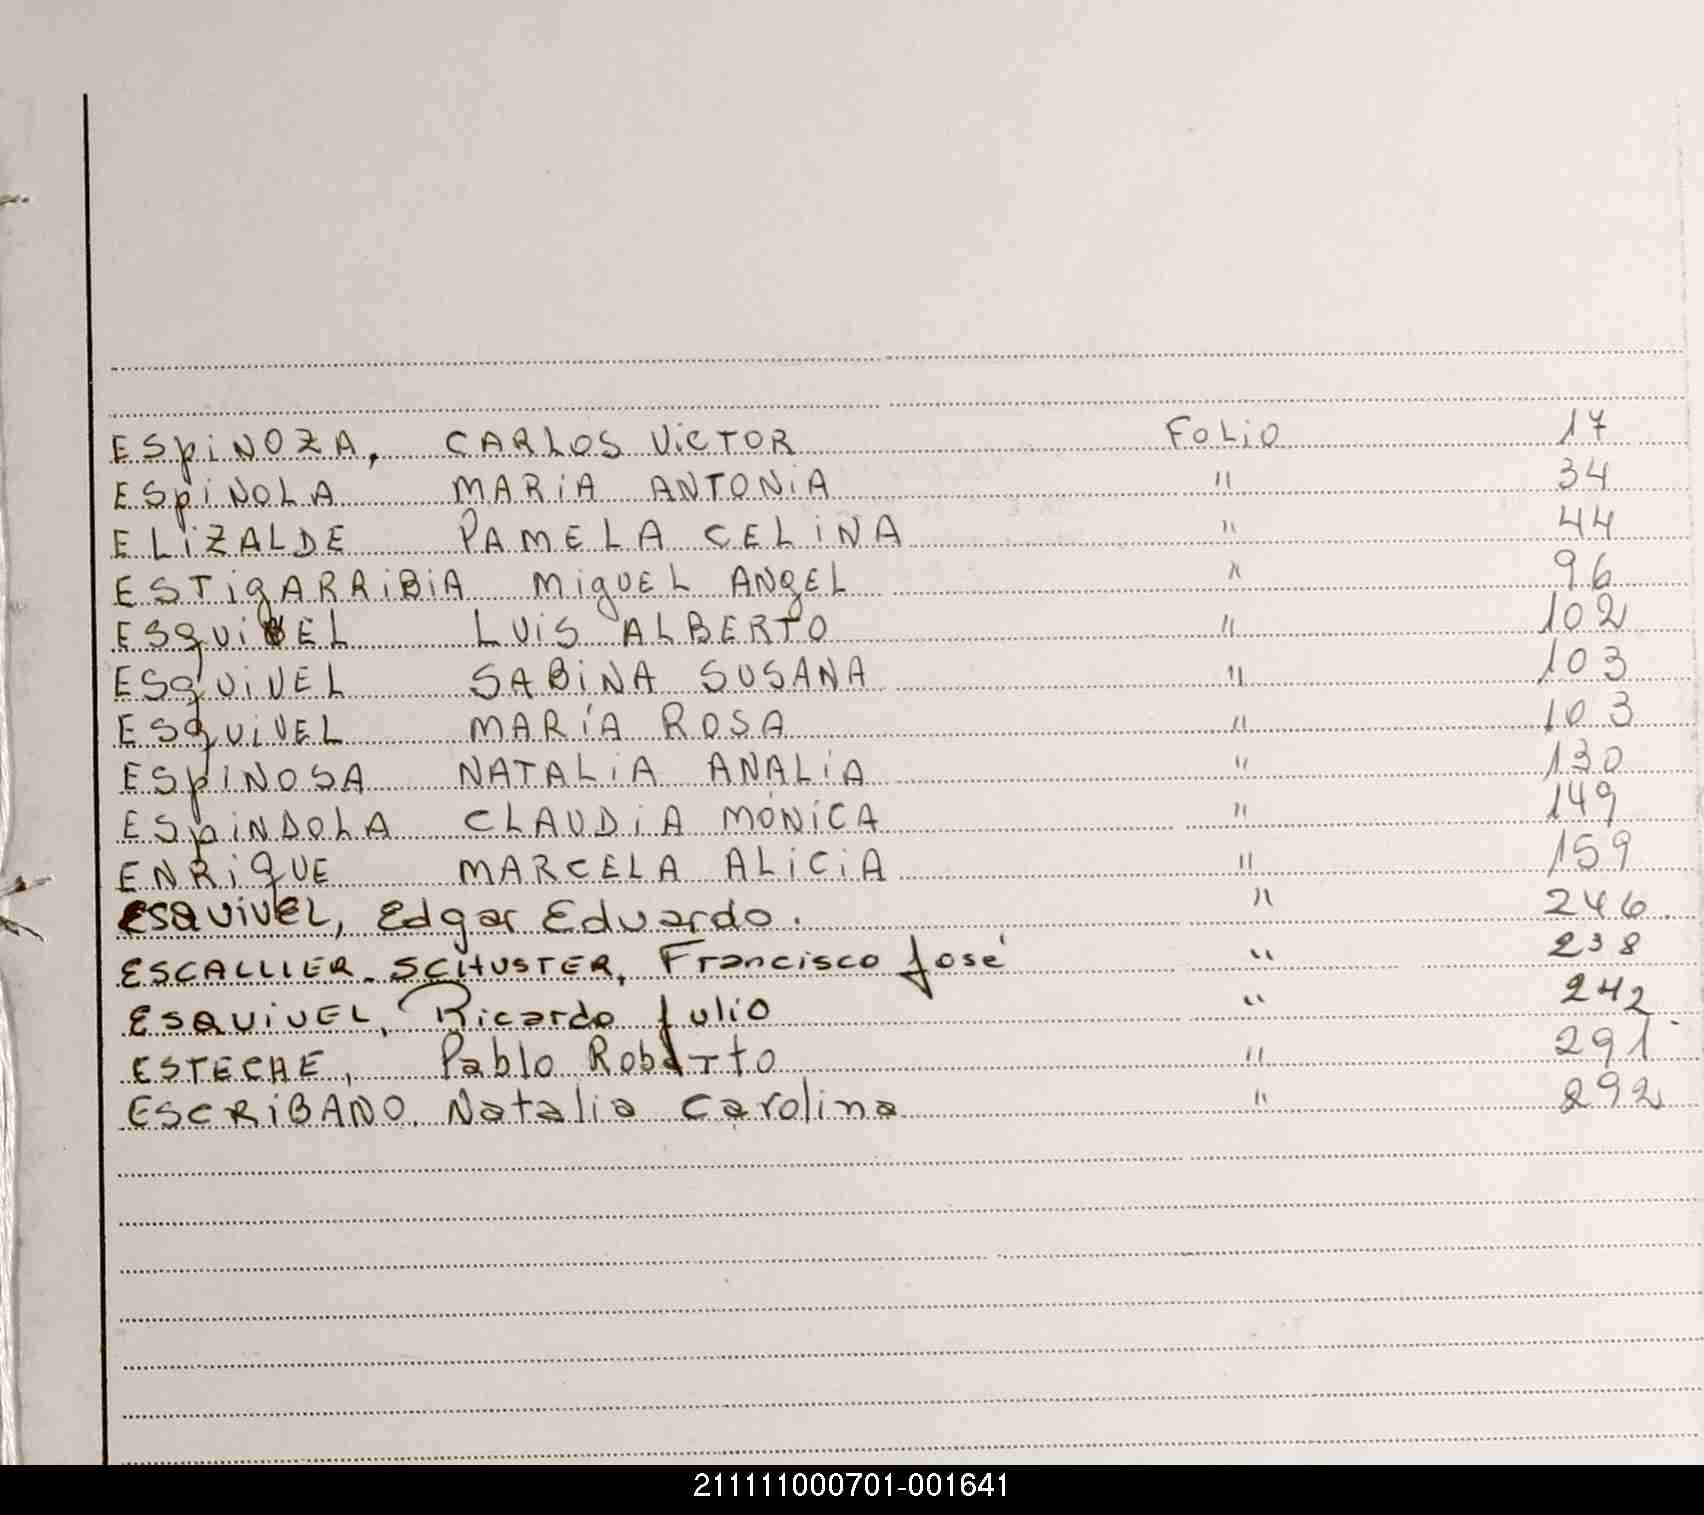 ESPINOZA, CARLOS VICTOR FOLIO 17
ESPINOLA MARIA ANTONIA " 34
ELIZALDE PAMELA CELINA " 44
ESTIGARRIBIA MIGUEL ANGEL " 96
ESQUIVEL LUIS ALBERTO " 102
ESQUIVEL SABINA SUSANA " 103
ESQUIVEL MARÍA ROSA " 103
ESPINOSA NATALIA ANALIA " 130
ESPINDOLA CLAUDIA MÓNICA " 149
ENRIQUE MARCELA ALICIA " 159
ESQUIVEL, Edgar Eduardo. " 246.
ESCALLIER-SCHUSTER, Francisco José " 238
ESQUIVEL, Ricardo Julio " 242
ESTECHE, Pablo Roberto " 291.
ESCRIBANO. Natalia Carolina " 292
211111000701-001641